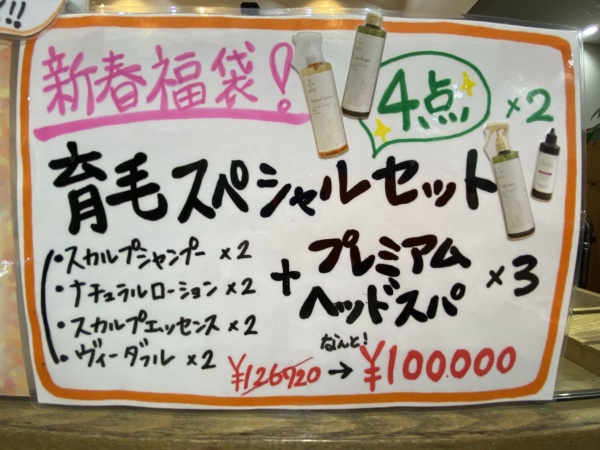 !!
新春福袋!
4点 ×2
育毛スペシャルセット
・スカルプシャンプー ×2
・ナチュラルローション ×2
・スカルプエッセンス ×2
・ヴィーダフル ×2
+ プレミアム
ヘッドスパ ×3
なんと!
¥126720 → ¥100000